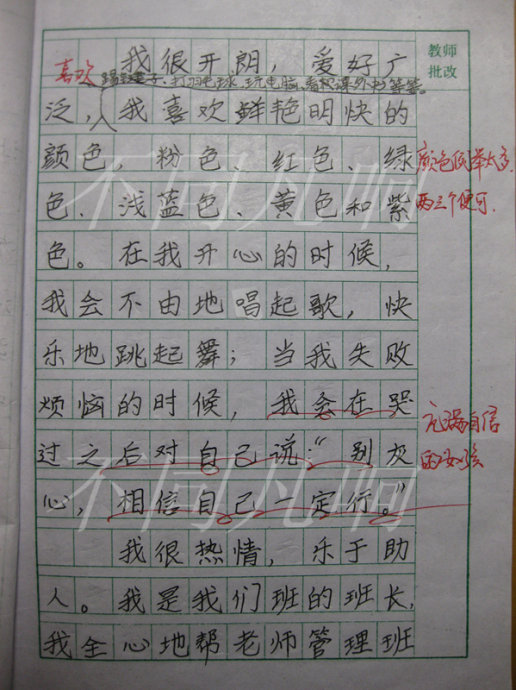 教师
批改
我很开朗，爱好广
喜欢
踢毽子、打羽毛球、玩电脑、看权课外书等等
泛，我喜欢鲜艳明快的
颜色，粉色、红色、绿
颜色例举太多，
色、浅蓝色、黄色和紫
两三个便可.
色。在我开心的时候，
我会不由地唱起歌，快
乐地跳起舞；当我失败
烦恼的时候，我会在哭
充满自信
过之后对自己说：“别灰
的女孩
心，相信自己一定行。”
我很热情，乐于助
人。我是我们班的班长，
我全心地帮老师管理班
不同凡响
不同凡响